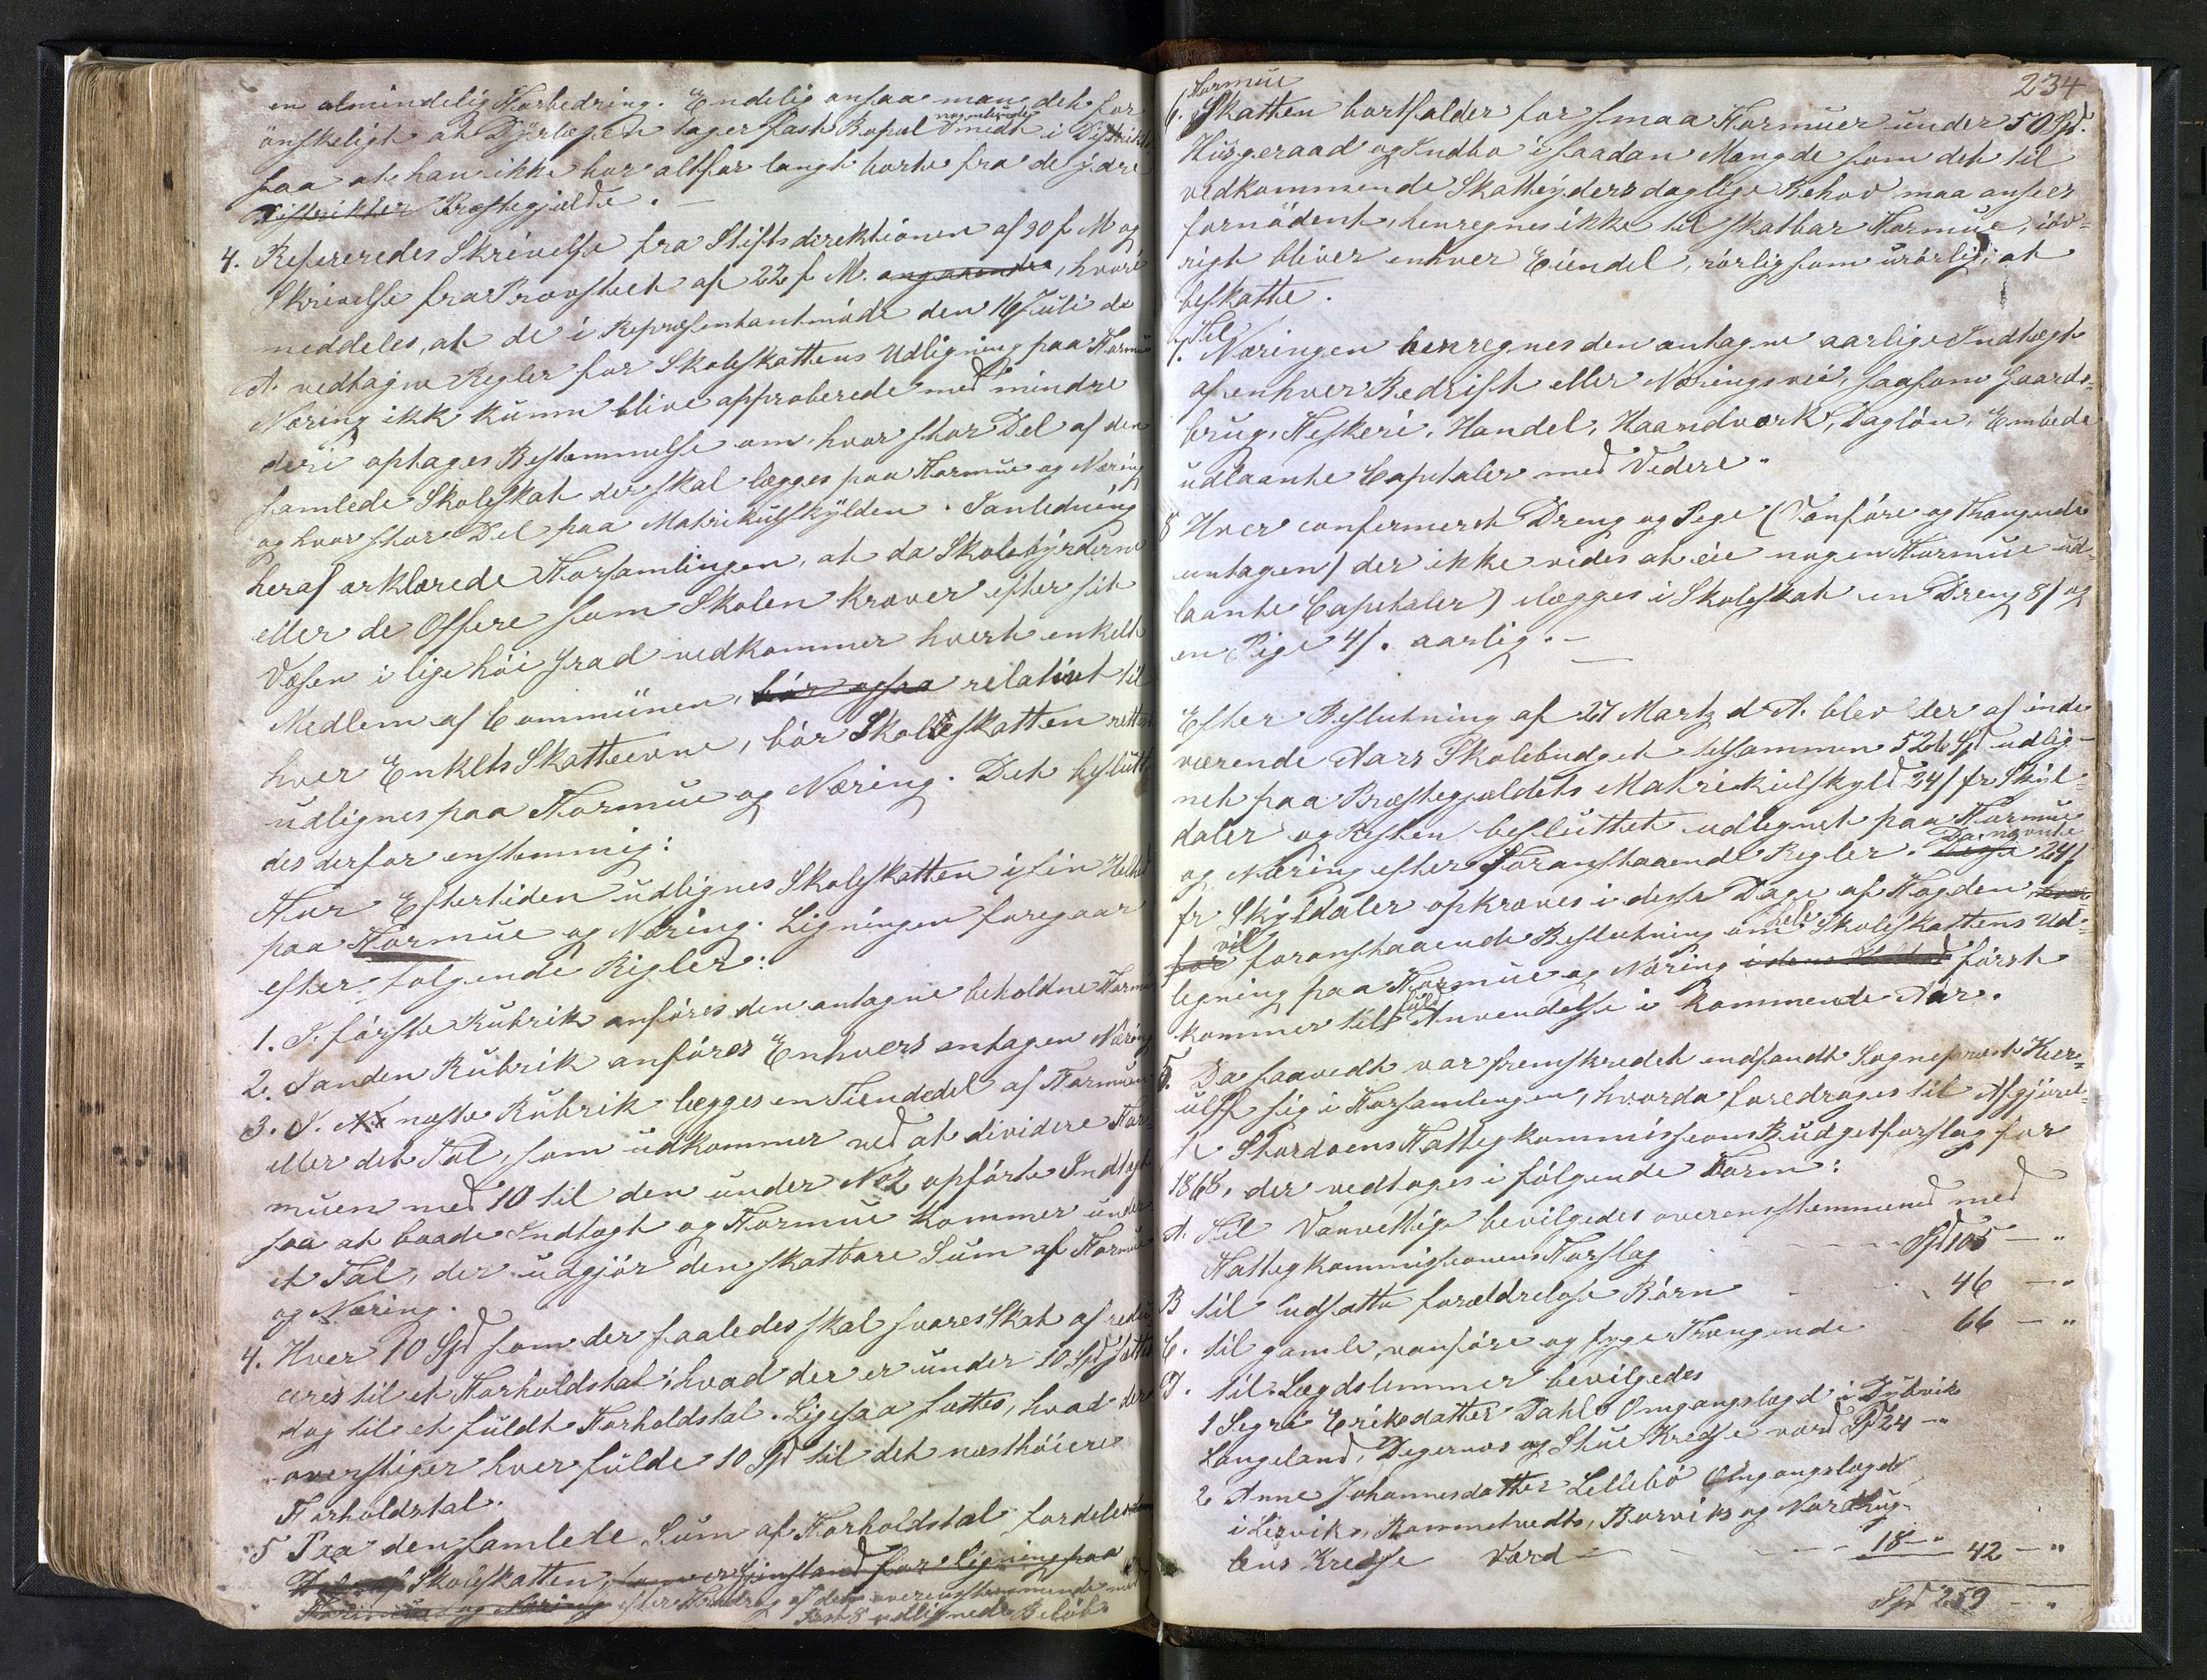 en almindelig Forbedring. Endelig ansaa man det for
önskeligt at Dyrlægen tager fast Bopæl nogenlunde midt i Distriktet,
saa at han ikke bor altfor langt borte fra de ydre
Distrikter Præstegjælde. —
4. Refereredes Skrivelse fra Stiftsdirektionen af 30 f. M og
Skrivelse fra Provstiet af 22 f. M. angaaende, hvori
meddeles, at de i Repræsentantmöde den 16 Juli d.
A. vedtagne Regler for Skoleskattens Udligning paa Formue
Næring ikke kunne blive approberede med mindre
deri optages Bestemmelse om, hvor stor Del af den
samlede Skoleskat der skal lægges paa Formue og Næring
og hvor stor Del paa Matrikulskylden. I anledning
heraf erklærede Forsamlingen, at da Skolebyrderne
eller de Offere som Skolen kræver efter sit
Væsen i lige höi Grad vedkommer hvert enkelt
Medlem af Communen, bör ogsaa relativt til
hver Enkelts Skatteevne, bör Skoleskatten rettest
udlignes paa Formue og Næring. Det beslutte-
des derfor enstemmig:
For Eftertiden udlignes Skoleskatten i sin Helhed
paa Formue og Næring. Ligningen foregaar
efter fölgende Regler:
1. I förste Rubrik anföres den antagne beholdne Formue
2. I anden Rubrik anföres Enhvers antagen Næring
3. I næste Rubrik lægges en Tiendedel af Formuen
eller det Tal, som udkommer ved at dividere For-
muen med 10 til den under No 2 opförte Indtægt
saa at baade Indtægt og Formue kommer under
et Tal, der udgjör den skatbare Sum af Formue
og Næring.
4. Hver 10 Spd som der saaledes skal svares Skat af redu-
ceres til et Forholdstal; hvad der er under 10 Spd sættes
dog til et fuldt Forholdstal. Ligesaa sættes, hvad der
overstiger hver fulde 10 Spd til det næsthöiere
Forholdstal.
5 Paa den samlede Sum af Forholdstal fordeles
Del af Skoleskatten, som er Gjenstand for Ligning paa
Formue og Næring efter Fradrag af det overensstemmende med
Post 8 udlignede Belöb.
234
6. Formue
Skatten bortfalder for smaa Formuer under 50 Spd.
Husgeraad og Indbo i saadan Mængde som det til
vedkommende Skatteyders daglige Behov maa ansees
fornödent, henregnes ikke til skatbar Formue; iöv-
rigt bliver enhver Eiendel, rörlig som urörlig, at
beskatte.
7. Til Næringen henregnes den antagne aarlige Indtægt
af enhver Bedrift eller Næringsvei, saasom Gaards-
brug, Fiskeri, Handel, Haandværk, Daglön, Embede
udlaante Capitaler med Videre.
8 Hver confermeret Dreng og Pige (Vanföre og Trængende
untagen) der ikke vides at eie nogen Formue ud-
laante Capitaler) ilægges i Skoleskat en Dreng 8 s og
en Pige 4 s. aarlig. —
Efter Beslutning af 27 Martz d. A. blev der af inde
værende Aars Skolebudget tilsammen 526 Spd udlig-
net paa Præstegjældets Matrikulskyld 24 s pr Skyl-
daler og Resten besluttet udlignet paa Formue
og Næring efter Foranstaaende Regler. Disse Da nævnte 24 s
pr Skyldaler opkræves i disse Dage af Fogden,
for vil foranstaaende Beslutning om hele Skoleskattens Ud-
ligning paa Formue og Næring i dens Helhed först
kommer til fuld Anvendelse i kommende Aar.
5. Da saavidt var fremskredet indfandt Sogneprest Kier-
ulff sig i Forsamlingen, hvorda foredroges til Afgjörel-
se Stordöens Fattigkommissions Budgetforslag for
1868, der vedtoges i fölgende Form:
A. Til Vanvittige bevilgedes overensstemmend med
Fattigkommissionens Forslag - - - Spd 105 — "
B til udsatte forældrelöse Börn - - 46 — "
C. til gamle, vanföre og syge Trængende 66 — "
D. til Lægdslemmer bevilgedes
1 Segri Eriksdatter Dahl Omgangslægd i Dybvik
Langeland, Digernæs og Stue Kredse værd Spd 24 — "
2 Anne Johannesdatter Lillebö Omgangslægd
i Lervik, Rommetvedts, Borviks og Nordhug-
lens Kredse Værd - - - 18 — " 42 — "
Spd 259 — "